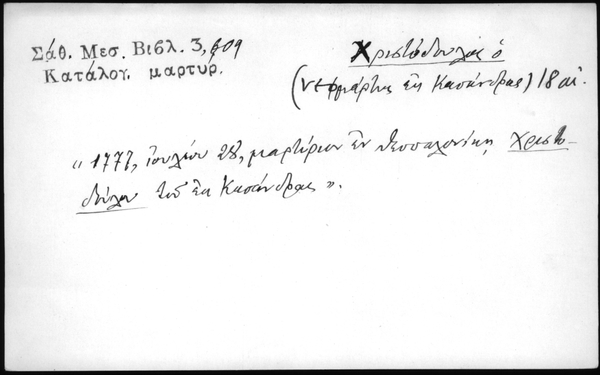 Σάθ. Μεσ. Βιβλ. 3, 609
Κατάλογ. μαρτύρ.
Χριστόδουλος ὁ
(νεομάρτυς ἐκ Κασάνδρας) 18 αἰ.
« 1777, ἰουλίου 28, μαρτύριον ἐν Θεσσαλονίκῃ Χριστο-
δούλου τοῦ ἐκ Κασάνδρας ».